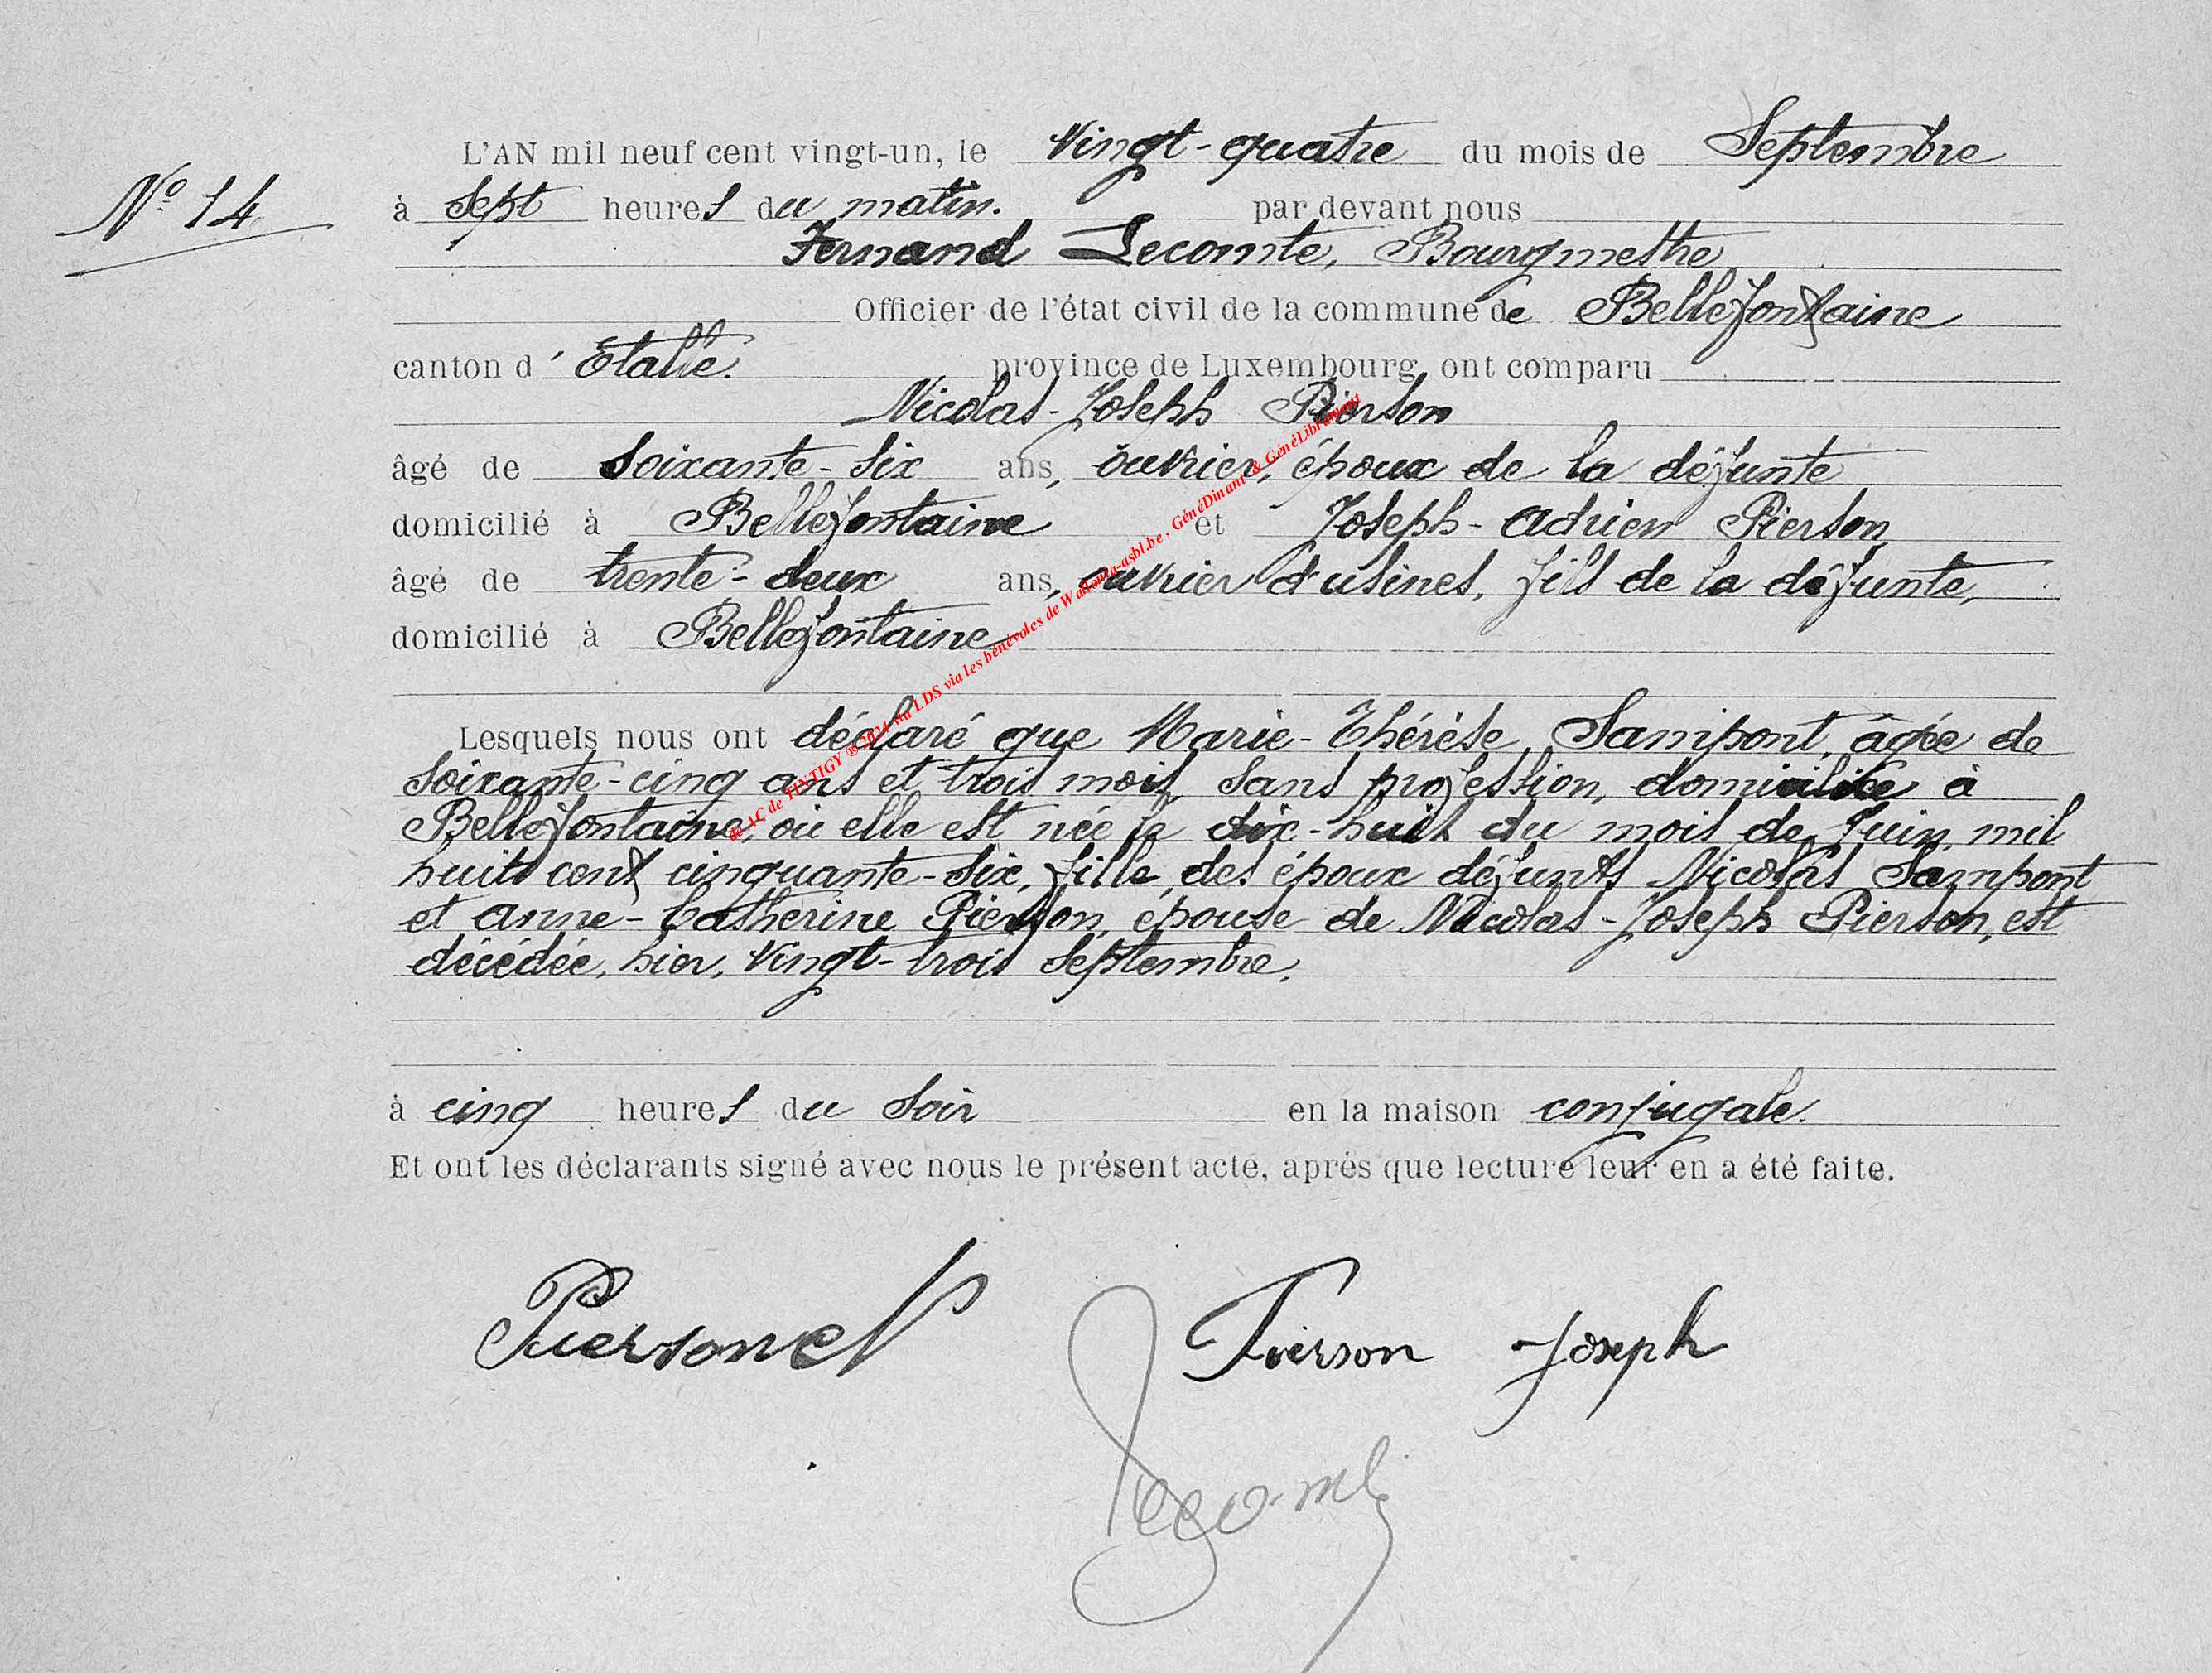 L'AN mil neuf cent vingt-un, le Vingt-quatre du mois de Septembre
N° 14
à sept heures du matin. par devant nous
Fernand Lecomte, Bourgmestre
Officier de l'état civil de la commune de Bellefontaine
canton d' Etalle. province de Luxembourg, ont comparu
Nicolas-Joseph Pierson
âgé de soixante-six ans, ouvrier, époux de la défunte
domicilié à Bellefontaine et Joseph-Adrien Pierson
âgé de trente-deux ans, ouvrier d'usines, fils de la défunte,
domicilié à Bellefontaine
Lesquels nous ont déclaré que Marie-Thérèse Sampont, âgée de
soixante-cinq ans et trois mois, sans profession, domiciliée à
Bellefontaine, où elle est née le dix-huit du mois de Juin mil
huit cent cinquante-six, fille des époux défunts Nicolas Sampont
et Anne-Catherine Pierson, épouse de Nicolas-Joseph Pierson, est
décédée, hier, vingt-trois Septembre,
à cinq heures du soir en la maison conjugale.
Et ont les déclarants signé avec nous le présent acte, après que lecture leur en a été faite.
Pierson N Pierson Joseph
Lecomte
de AC de TINTIGY ® 2024 via LDS via les bénévoles de Wallonia-asbl.be , GénéDinant & GénéLibramont